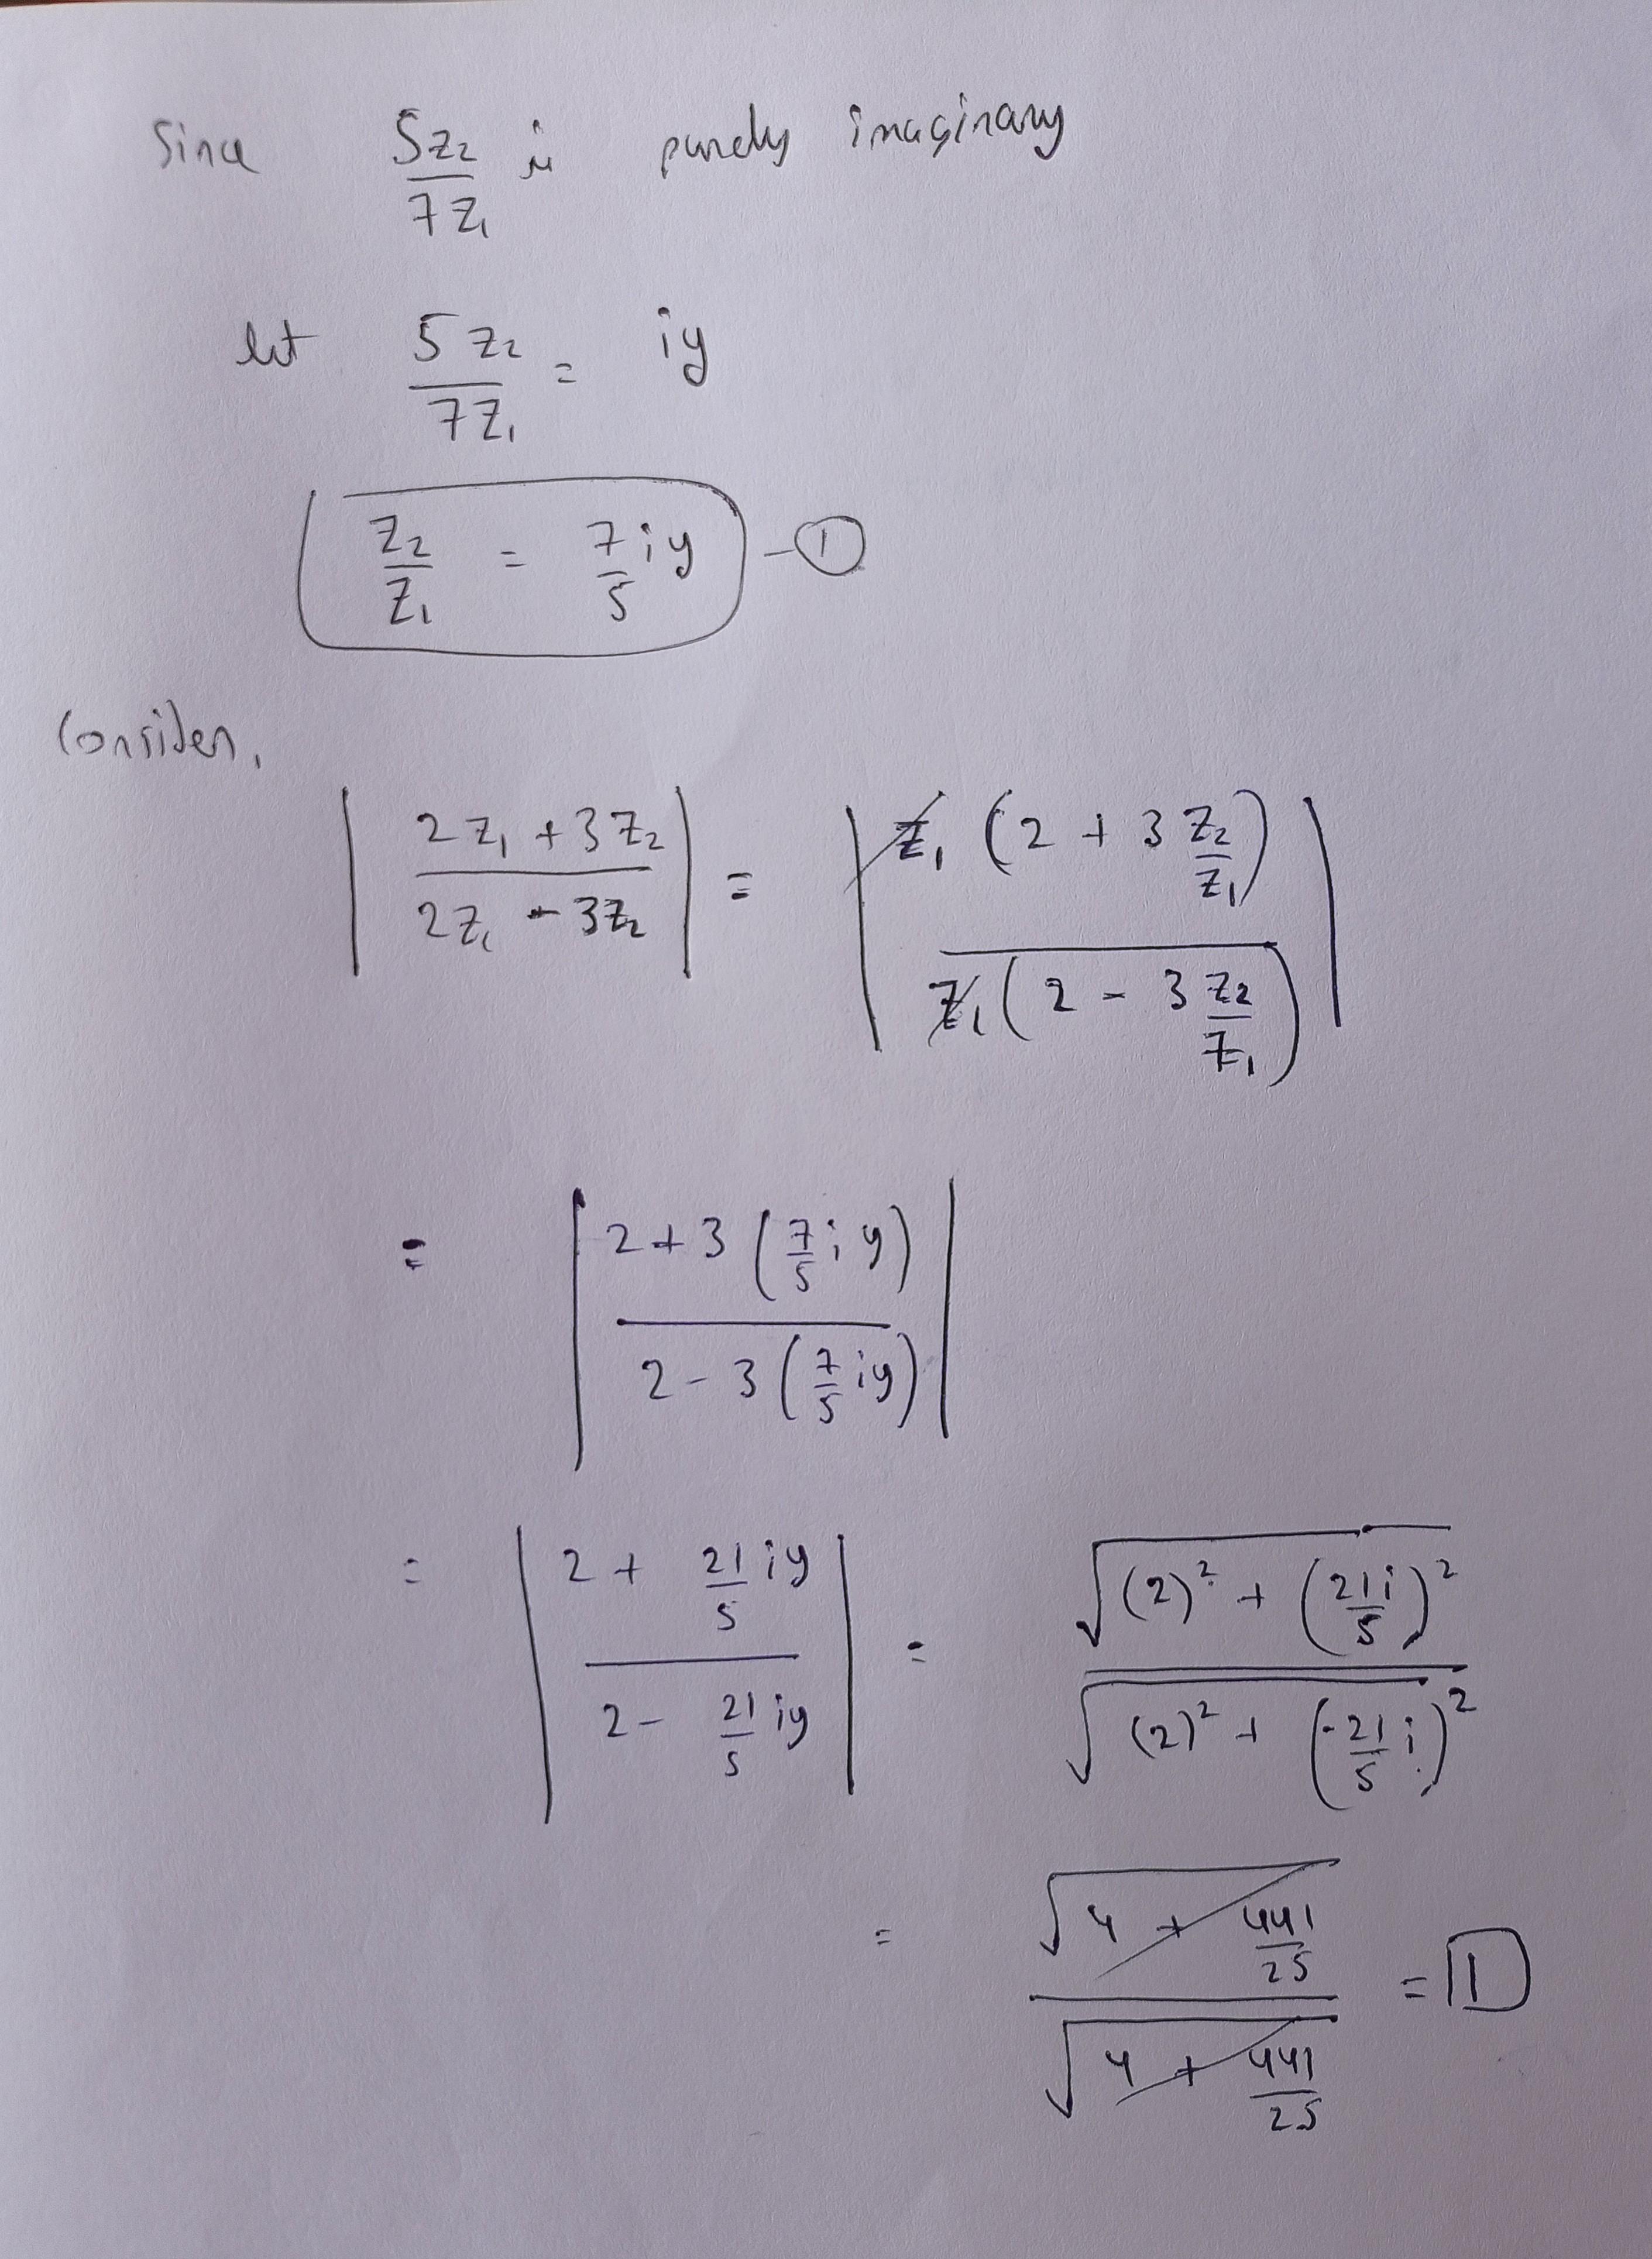 Since 5z₂/7z₁ is purely imaginary
let 5z₂/7z₁ = iy
z₂/z₁ = 7/5 iy - ①
Consider,
| (2z₁ + 3z₂)/(2z₁ - 3z₂) | = | z₁(2 + 3 z₂/z₁) / z₁(2 - 3 z₂/z₁) |
= | (2 + 3(7/5 iy)) / (2 - 3(7/5 iy)) |
= | (2 + 21/5 iy) / (2 - 21/5 iy) | = √((2)² + (21/5 i)²) / √((2)² + (-21/5 i)²)
= √(4 + 441/25) / √(4 + 441/25) = 1